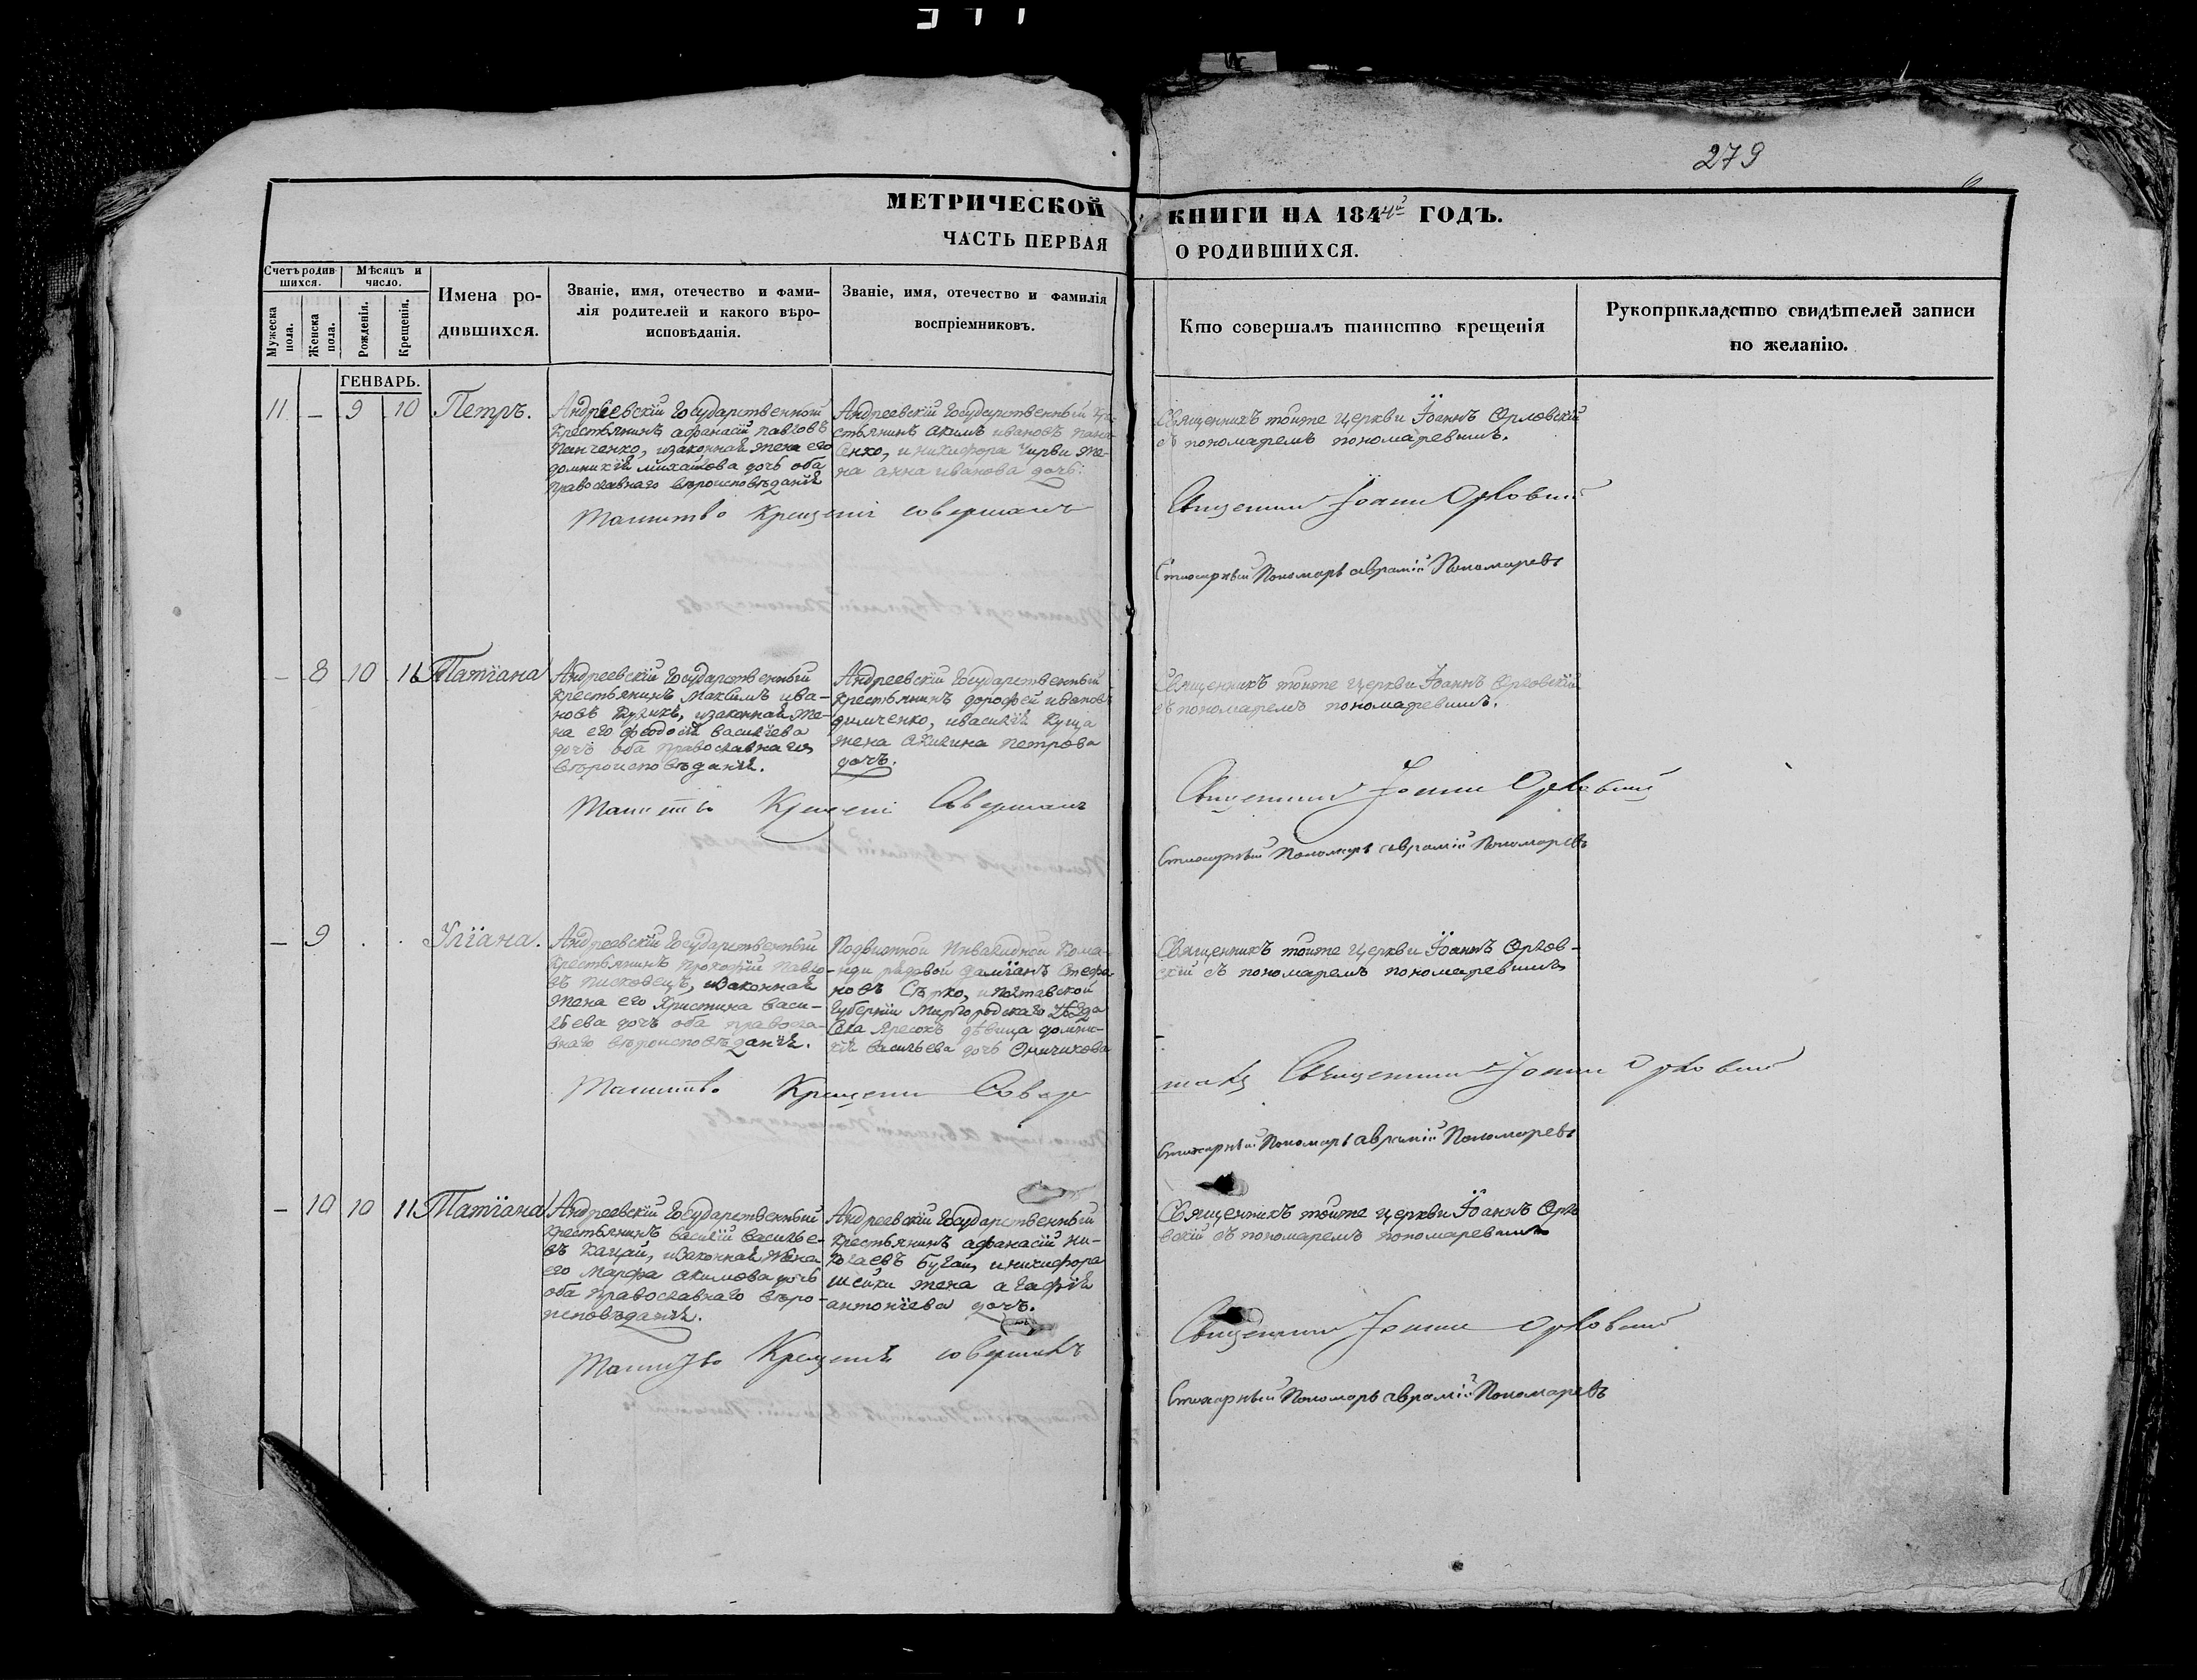 279
МЕТРИЧЕСКОЙ КНИГИ НА 1844й ГОДЪ.
ЧАСТЬ ПЕРВАЯ О РОДИВШИХСЯ.
Счетъ родив-
шихся.
Мѣсяцъ и
число.
Мужеска
пола.
Женска
пола.
Рожденія.
Крещенія.
Имена ро-
дившихся.
Званіе, имя, отечество и фами-
лія родителей и какого вѣро-
исповѣданія.
Званіе, имя, отечество и фамилія
воспріемниковъ.
Кто совершалъ таинство крещенія
Рукоприкладство свидѣтелей записи
по желанію.
ГЕНВАРЬ.
11 — 9 10 Петръ.
Андреевскій Государственный
крестьянинъ афанасій павловъ
Панченко, изаконная жена его
домникія михайлова дочь оба
православнаго вѣроисповѣданія
Андреевскій Государственный кре-
стьянинъ акимъ ивановъ пана-
сенко, и никифора Чирви же-
на анна иванова дочь.
Священникъ тойже церкви Іоаннъ Орловскій
съ пономаремъ пономаревымъ.
Таинство Крещенія совершалъ
Священникъ Іоаннъ Орловскій
Стихарный Пономарь аврамій Пономаревъ
— 8 10 11 Татіана
Андреевскій Государственный
крестьянинъ Максимъ ива-
новъ изаконная же-
на его феодосія василіева
дочь оба православнаго
вѣроисповѣданія.
Андреевскій Государственный
крестьянинъ дорофей ивановъ
димченко, ивасилія Куща
жена акилина петрова
дочь.
Священникъ тойже церкви Іоаннъ Орловскій
съ пономаремъ пономаревымъ.
Таинство Крещенія Совершалъ
Священникъ Іоаннъ Орловскій
Стихарный Пономарь аврамій Пономаревъ
— 9 . . Уліана.
Андреевскій Государственный
крестьянинъ прокофій павло-
въ писковецъ, изаконная
жена его Христина васи-
льева дочь оба правосла-
внаго вѣроисповѣданія.
Подвижной Инвалидной Кома-
нди рядовой дамианъ Стефа-
новъ Сѣрко, и полтавской
Губерніи Миргородскаго уѣзда
Села Яресокъ дѣвица домни-
кія васильева дочь
Священникъ тойже церкви Іоаннъ Орлов-
скій съ пономаремъ пономаревымъ
Таинство Крещенія Совер
шалъ Священникъ Іоаннъ Орловскій
Стихарный Пономарь аврамій Пономаревъ
— 10 10 11 Татіана
Андреевскій Государственный
крестьянинъ василій василье-
въ Кацай, изаконная жена
его Марфа акимова дочь
оба православнаго вѣро-
исповѣданія.
Андреевскій Государственный
крестьянинъ афанасій ни-
колаевъ бугай, и никифора
шейки жена агафія
антоніева дочь.
Священникъ тойже церкви Іоаннъ Орло
вскій съ пономаремъ пономаревымъ
Таинство Крещенія совершалъ
Священникъ Іоаннъ Орловскій
Стихарный Пономарь аврамій Пономаревъ